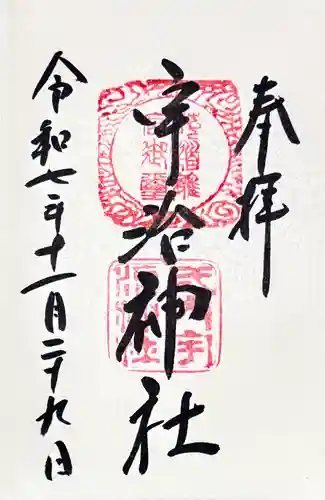 奉拝
宇治神社
令和七年十一月二十九日